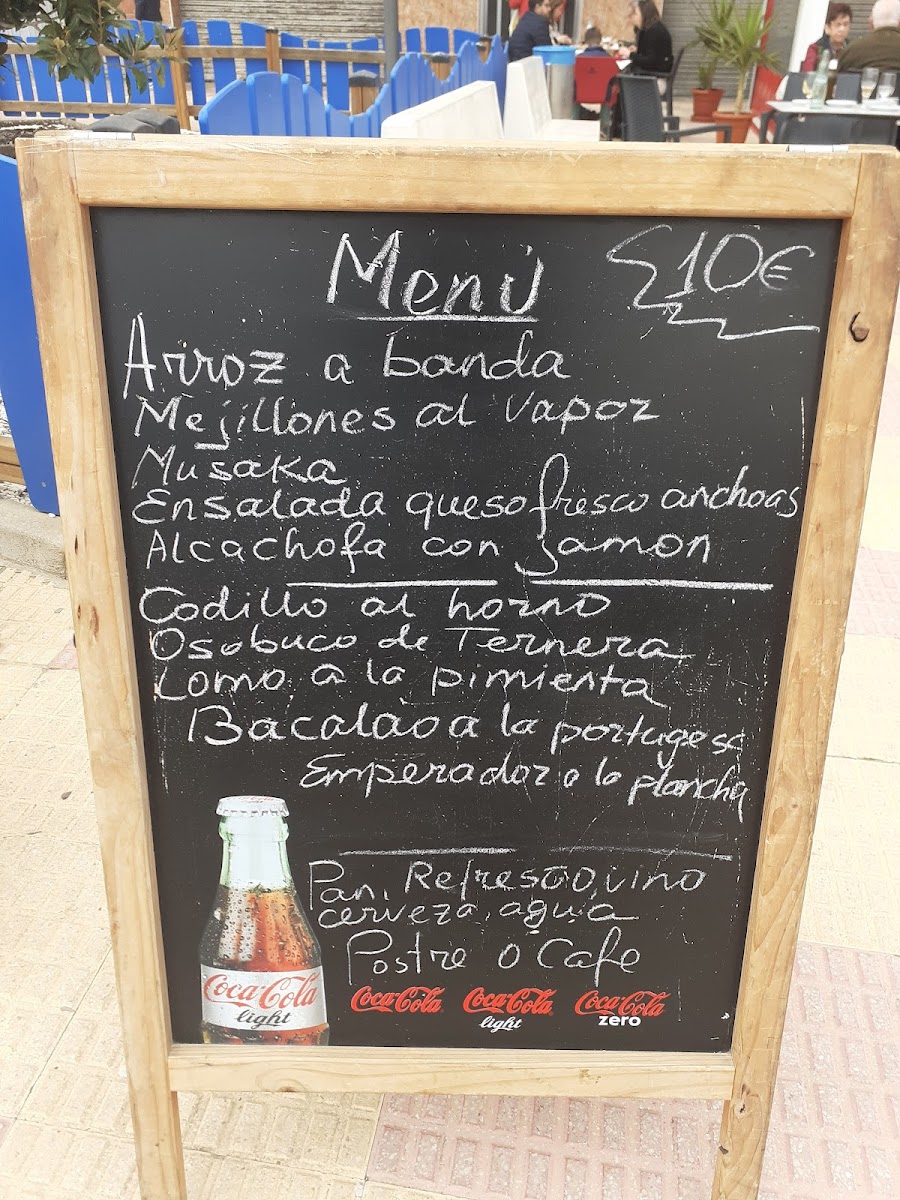 Menú 10€
Arroz a banda
Mejillones al vapor
Musaka
Ensalada queso fresco anchoas
Alcachofa con jamon
Codillo al horno
Osobuco de Ternera
Lomo a la pimienta
Bacalao a la portugesa
Emperador a la plancha
Pan, Refresco, vino
cerveza, agua
Postre o Cafe
Coca-Cola Coca-Cola light Coca-Cola zero
Coca-Cola light